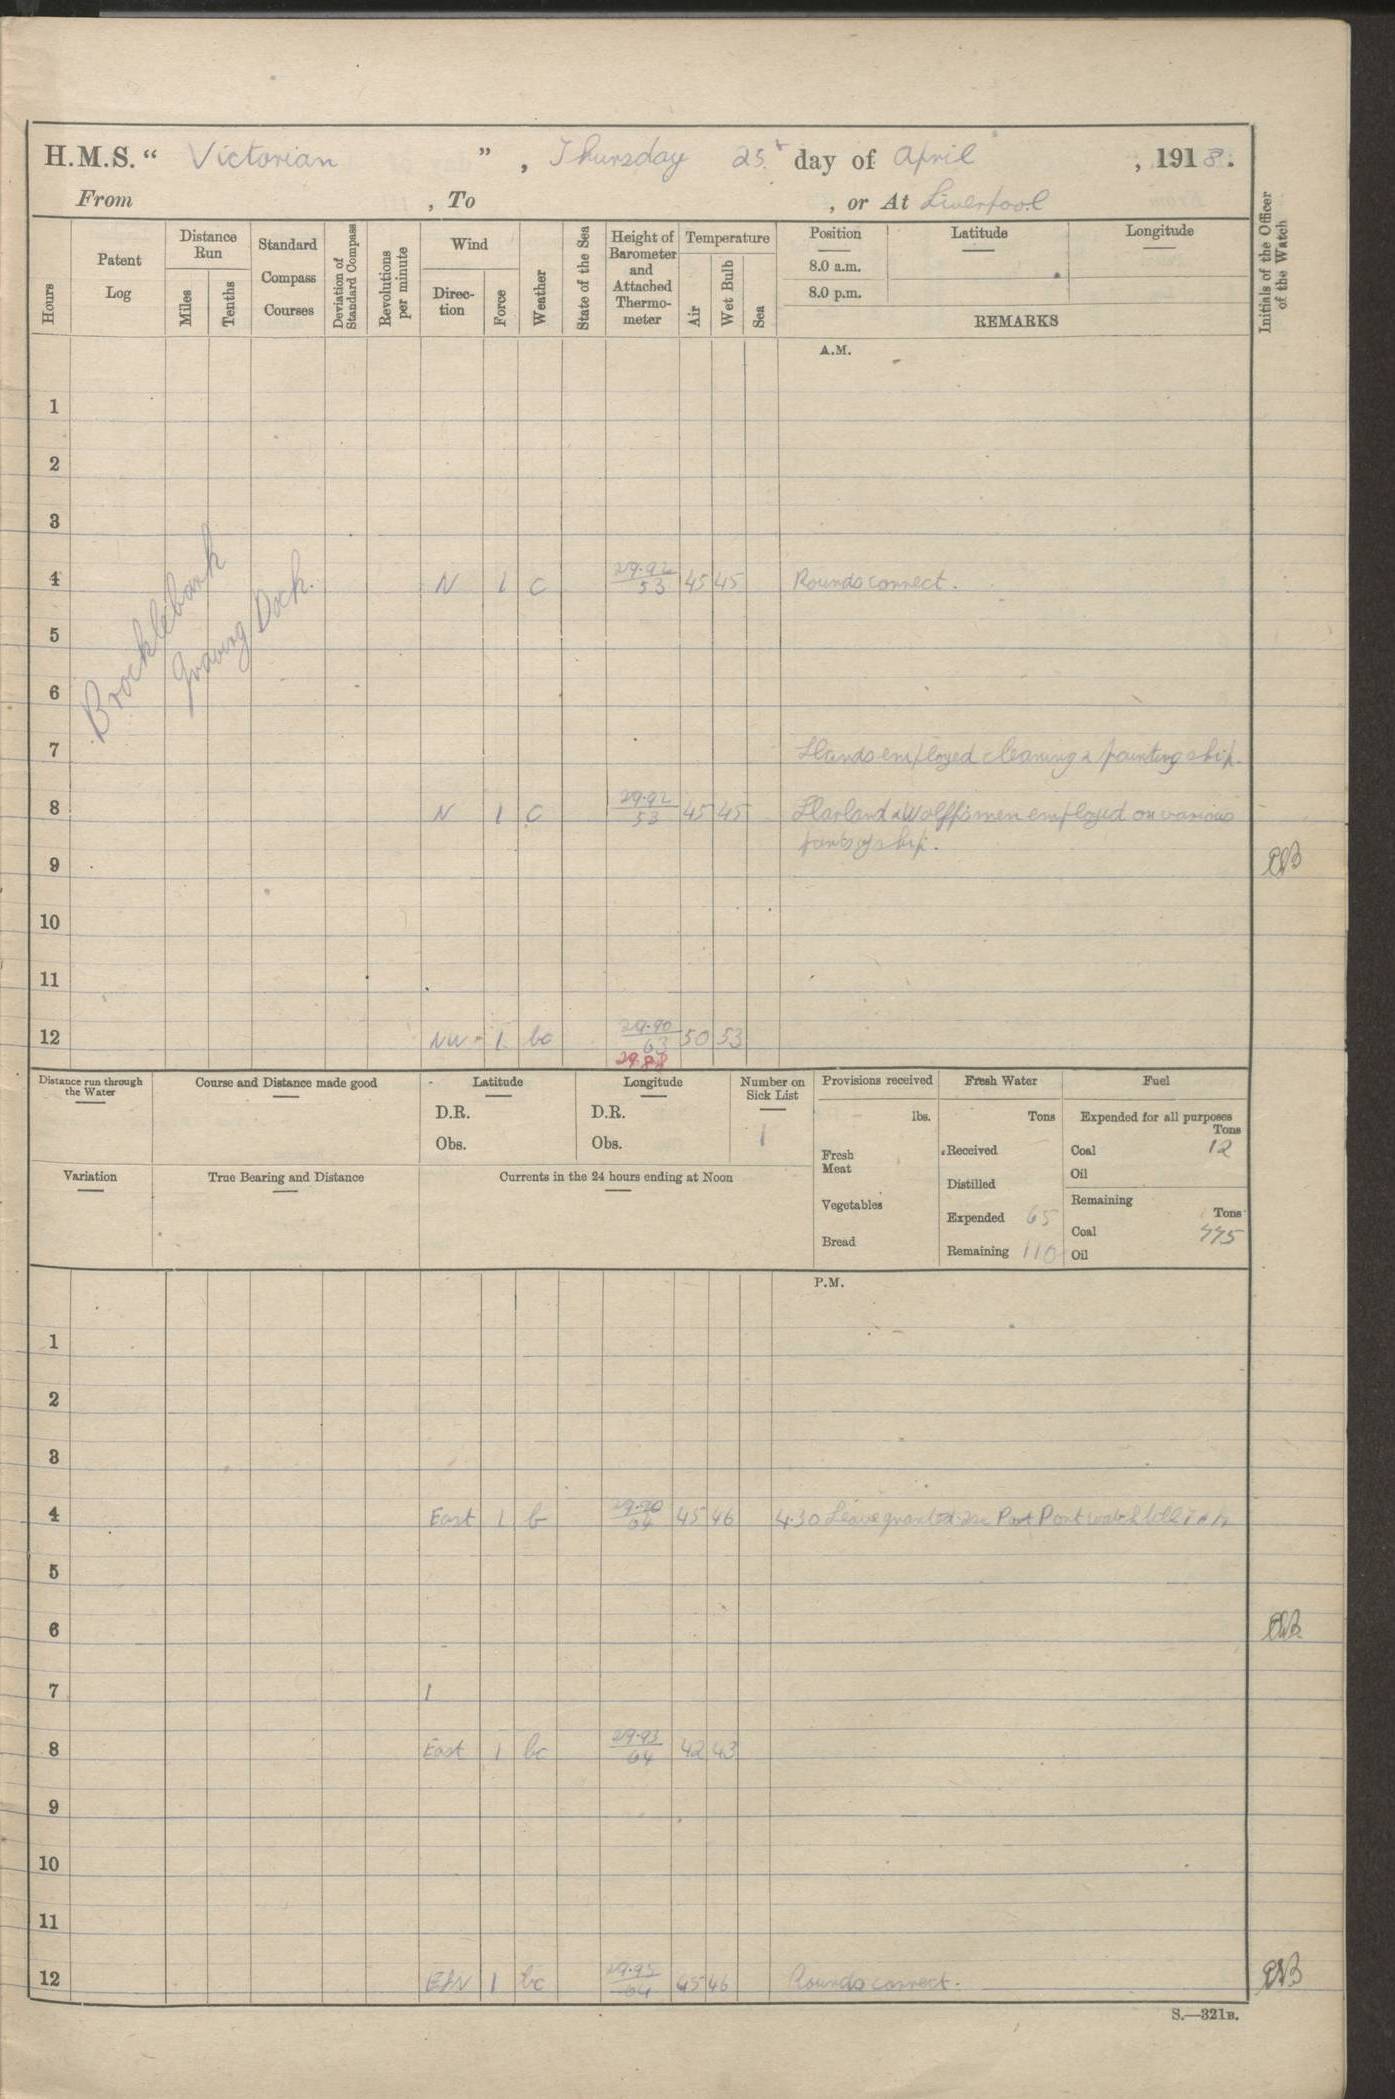 H.M.S. " Victorian " , Thursday 25t day of April , 1918.
From , To , or At Liverpool
Hours
Patent Log
Distance Run
Miles
Tenths
Standard Compass Courses
Deviation of Standard Compass
Revolutions per minute
Wind
Direction
Force
Weather
State of the Sea
Height of Barometer and Attached Thermometer
Temperature
Air
Wet Bulb
Sea
Position
Latitude
Longitude
8.0 a.m.
8.0 p.m.
REMARKS
Initials of the Officer of the Watch
A.M.
1
2
3
Brocklebank
Graving Dock.
4 N 1 c 29.92 53 45 45 Rounds correct.
5
6
7 Hands employed cleaning & painting ship.
8 N 1 c 29.92 53 45 45 Harland & Wolff's men employed on various
parts of ship.
9
10
11
12 NW 1 bc 29.90 63 50 53
29.88
Distance run through the Water
Course and Distance made good
Latitude
D.R.
Obs.
Longitude
D.R.
Obs.
Number on Sick List
1
Provisions received
lbs.
Fresh Meat
Vegetables
Bread
Fresh Water
Tons
Received
Distilled
Expended 65
Remaining 110
Fuel
Expended for all purposes
Tons
Coal 12
Oil
Remaining
Tons
Coal 775
Oil
Variation
True Bearing and Distance
Currents in the 24 hours ending at Noon
P.M.
1
2
3
4 East 1 b 64 45 46 4.30 Leave granted Port watch till 7 a.m.
5
6
7
8 East 1 bc 29.93 64 42 43
9
10
11
12 1 bc 29.95 64 45 46 Rounds correct.
S.—321B.